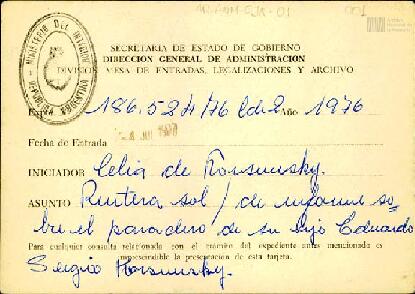 001
MINISTERIO DEL INTERIOR
ARGENTINA
SECRETARIA DE ESTADO DE GOBIERNO
DIRECCION GENERAL DE ADMINISTRACION
DIVISION MESA DE ENTRADAS, LEGALIZACIONES Y ARCHIVO
186.524/76 Año 1976
Fecha de Entrada
INICIADOR Celia de Korsunsky.
ASUNTO Reitera sol/ de informe so-
bre el paradero de su hijo Eduardo
Para cualquier consulta relacionada con el trámite del expediente antes mencionado es
imprescindible la presentación de esta tarjeta.
Sergio Korsunsky.